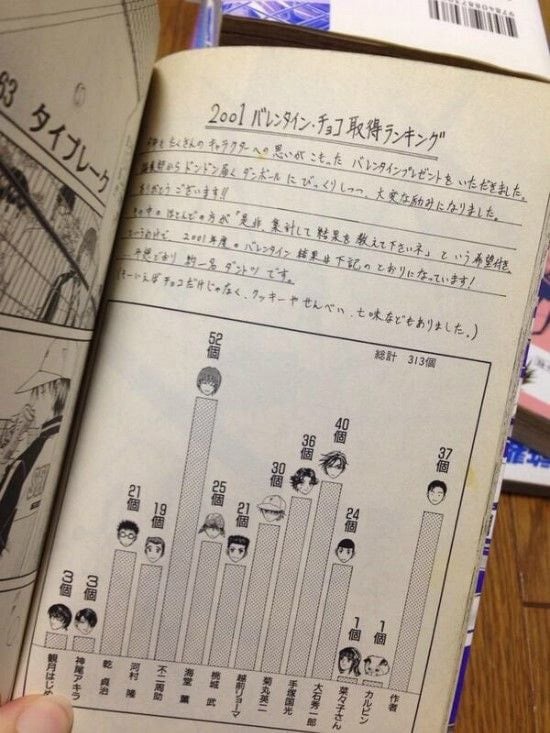 63 タイブレーク
2001 バレンタイン・チョコ 取得ランキング
たくさんのキャラクターへの思いが こもった バレンタインプレゼントをいただきました。
編集部からドンドン届くダンボールにびっくりしつつ、大変な励みになりました。
ありがとうございます!!
その中のほとんどの方が「是非、集計して結果を教えて下さいネ」という希望付き。
というわけで 2001年度のバレンタイン結果は下記のとおりになっています!
予想どおり 約一名ダントツです。
(そーいえばチョコだけじゃなく、クッキーやせんべい、七味などもありました。)
総計 313個
3個
3個
21個
19個
52個
25個
21個
30個
36個
40個
24個
1個
1個
37個
観月はじめ
神尾アキラ
乾 貞治
河村 隆
不二周助
海堂 薫
桃城 武
越前リョーマ
菊丸英二
手塚国光
大石秀一郎
菜々子さん
カルピン
作者